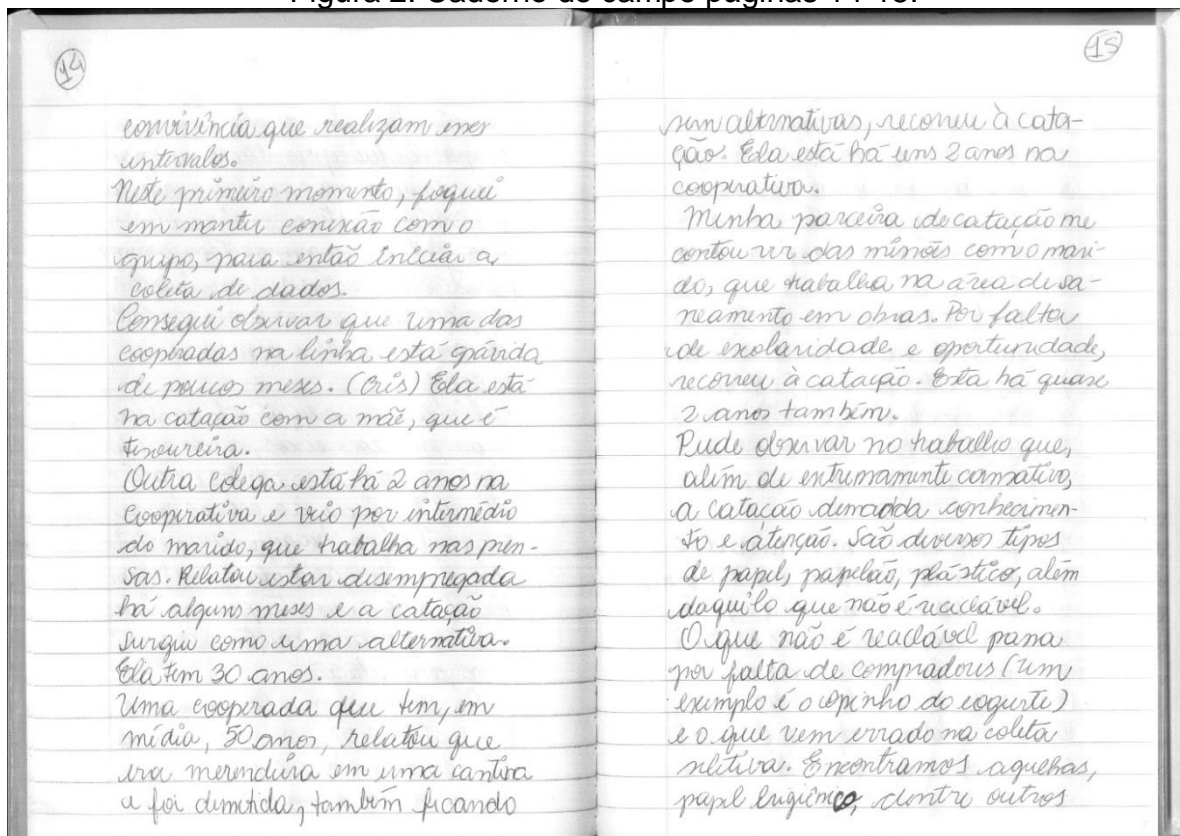 Figura 2: Caderno de campo páginas 14-15.
14
convivência que realizam nos
intervalos.
Neste primeiro momento, foquei
em manter conexão com o
grupo, para então iniciar a
coleta de dados.
Consegui observar que uma das
cooperadas na linha está grávida
de poucos meses. (Cris) Ela está
na catação com a mãe, que é
tesoureira.
Outra colega está há 2 anos na
cooperativa e veio por intermédio
do marido, que trabalha nas pren-
sas. Relatou estar desempregada
há alguns meses e a catação
surgiu como uma alternativa.
Ela tem 30 anos.
Uma cooperada que tem, em
média, 50 anos, relatou que
era merendeira em uma cantina
e foi demitida, também ficando
15
sem alternativas, recorreu à cata-
ção. Ela está há uns 2 anos na
cooperativa.
Minha parceira de catação me
contou vir das missões com o mari-
do, que trabalha na área de sa-
neamento em obras. Por falta
de escolaridade e oportunidade,
recorreu à catação. Esta há quase
2 anos também.
Pude observar no trabalho que,
além de extremamente cansativo,
a catação demanda conhecimen-
to e atenção. São diversos tipos
de papel, papelão, plástico, além
daquilo que não é reciclável.
O que não é reciclável passa
por falta de compradores (um
exemplo é o copinho do iogurte)
e o que vem errado na coleta
seletiva. Encontramos agulhas,
papel higiênico, dentre outros